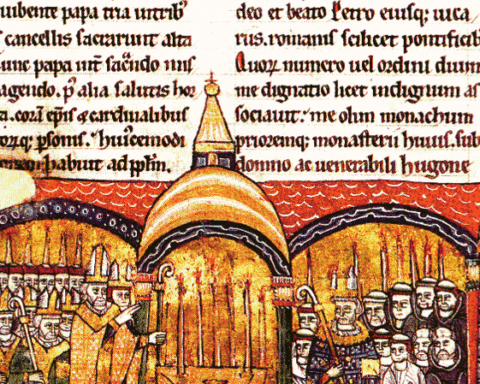 iubente papa tria
s cancellis sacrarunt alta
unc papa int̄ mis
agendo. p̄ alia salutis hor
corā ep̄is & cardinalibus
orq; ꝑsonis. huiꝰcemodi
habuit ad pplm̄.
deo et beato Petro eiusq; uica
rus. romanis scilicet pontificib
Quoꝝ numero uel ordini diuin
me dignatio licet indignum as
sociauit. me olim monachum
prioremq; monasterii huius. sub
domno ac uenerabili hugone